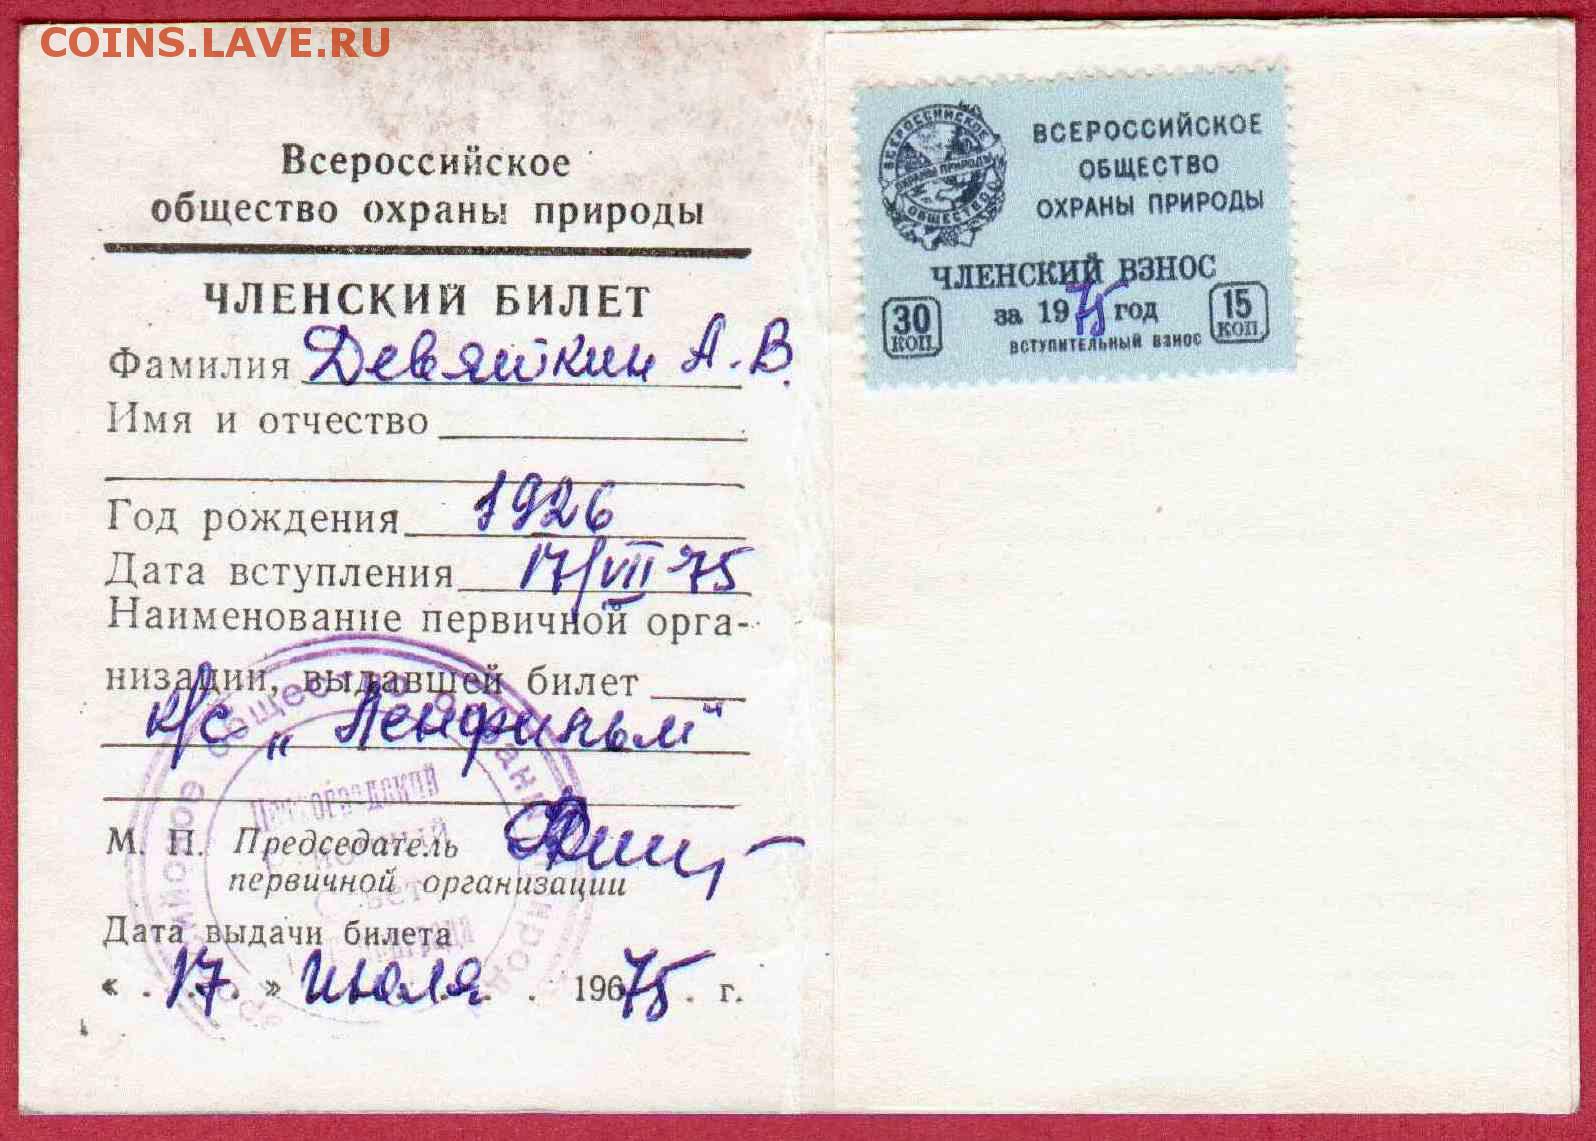 COINS.LAVE.RU
Всероссийское
общество охраны природы
ЧЛЕНСКИЙ БИЛЕТ
Фамилия Девяткин А.В.
Имя и отчество
Год рождения 1926
Дата вступления 17/VII 75
Наименование первичной орга-
низации, выдавшей билет
к/с „Ленфильм"
М. П. Председатель
первичной организации
Дата выдачи билета
« 17 » Июля 19675 г.
общество охраны природы
Совет
ВСЕРОССИЙСКОЕ
ОБЩЕСТВО
ОХРАНЫ ПРИРОДЫ
ВСЕРОССИЙСКОЕ
ОХРАНЫ ПРИРОДЫ
ОБЩЕСТВО
ЧЛЕНСКИЙ ВЗНОС
за 1975 год
30 КОП.
15 КОП.
ВСТУПИТЕЛЬНЫЙ ВЗНОС